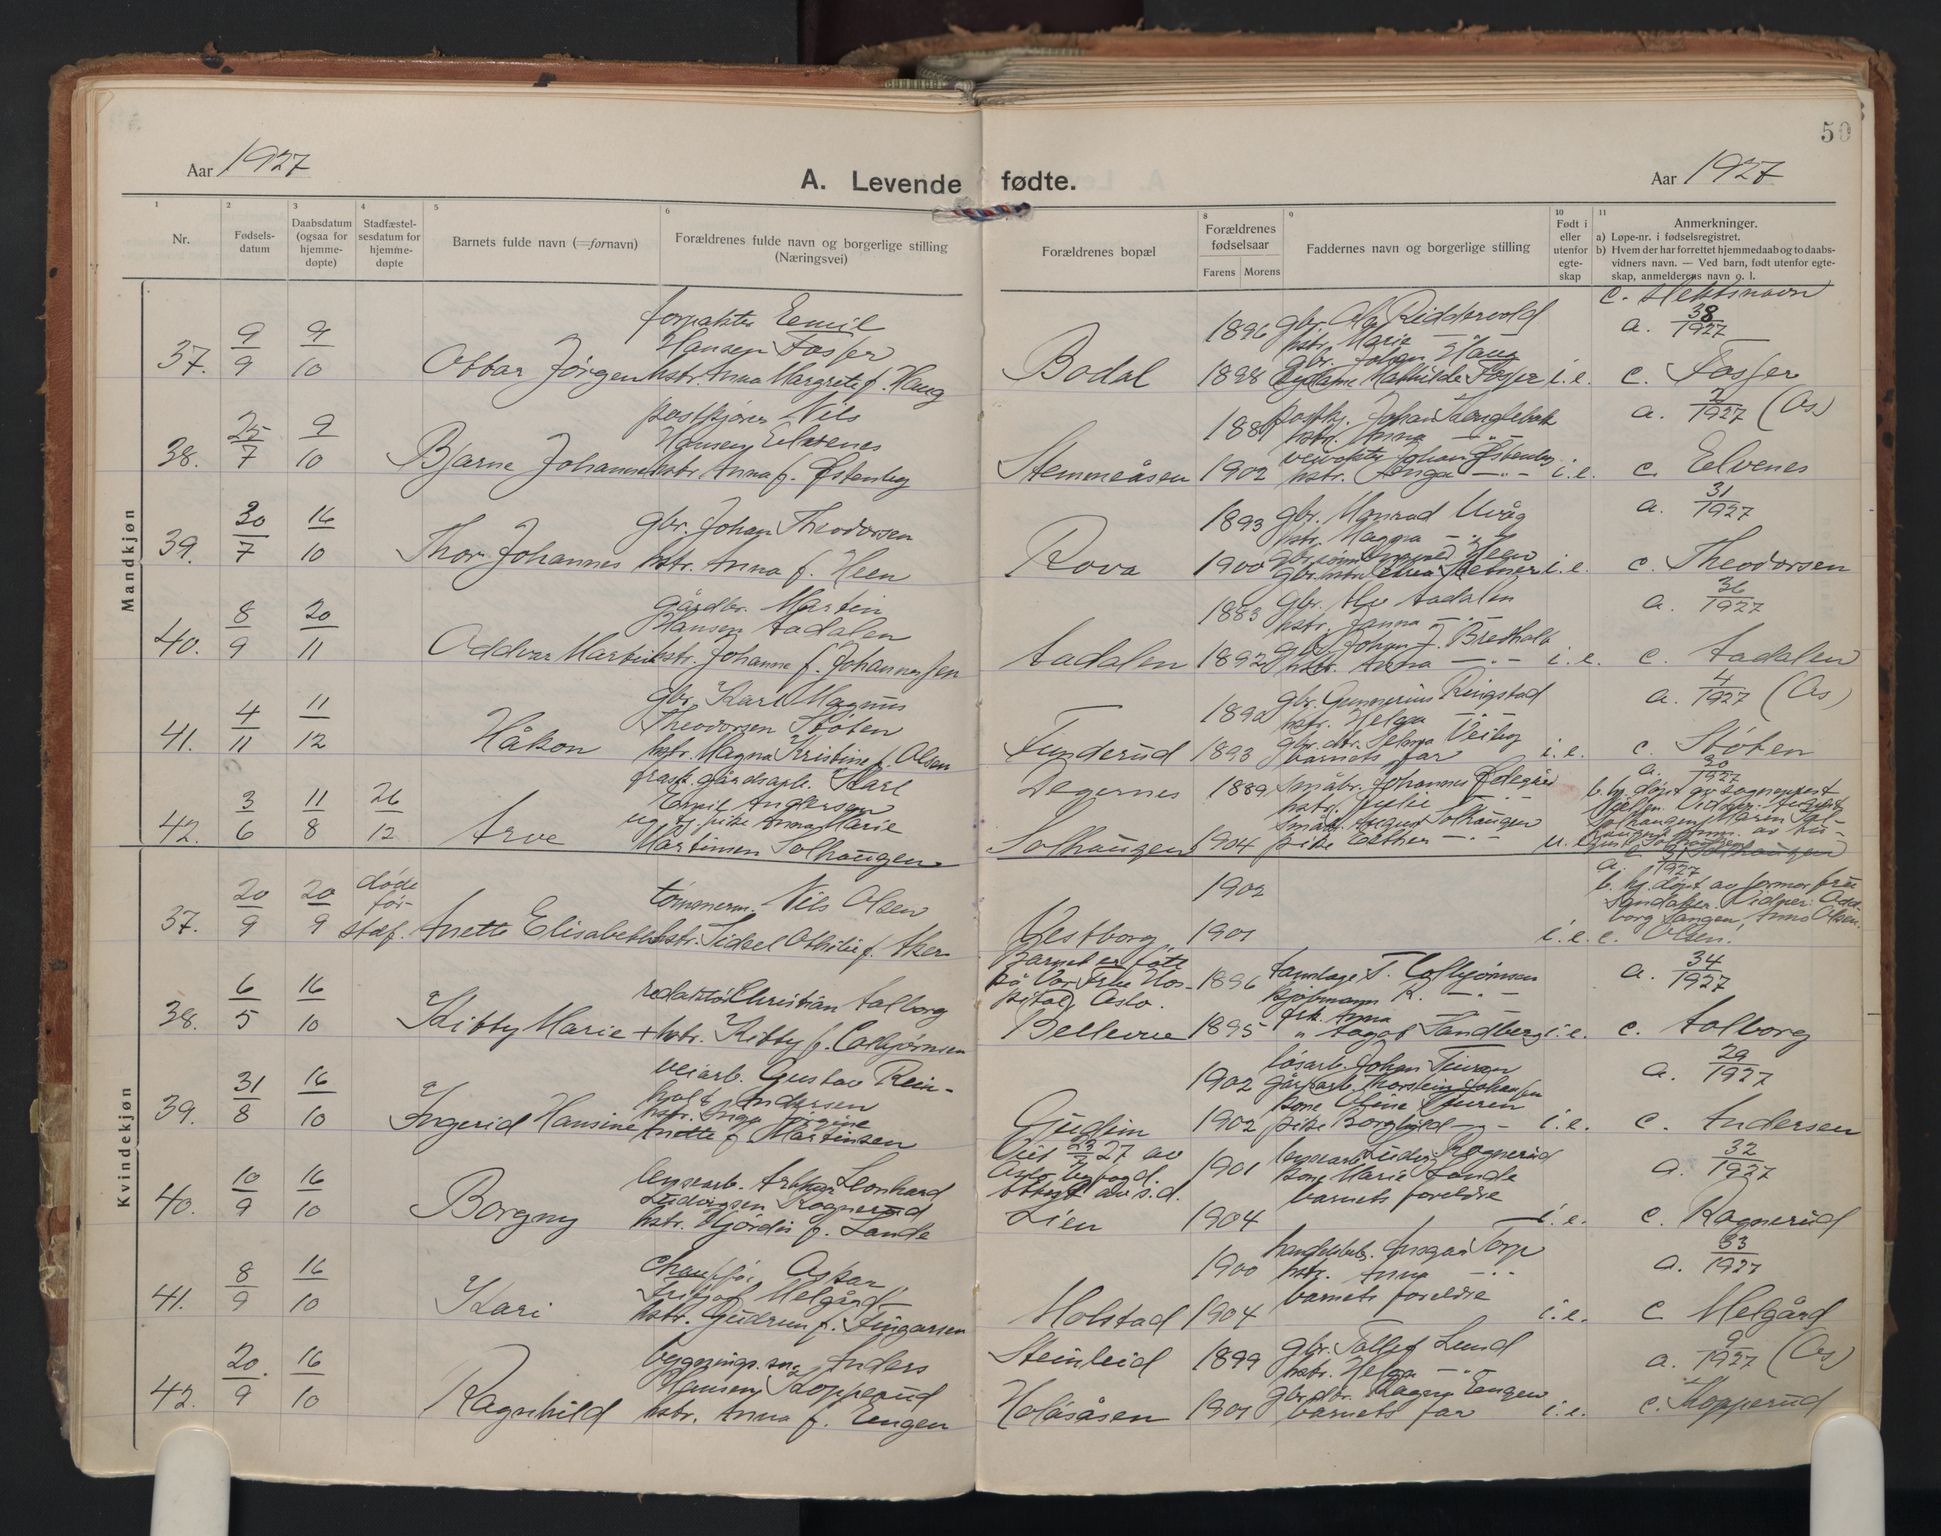 50
Aar 1927
A. Levende fødte.
Aar 1927
1
2
3
4
5
6
8
9
10
11
Nr.
Fødsels-
datum
Daabsdatum
(ogsaa for
hjemme-
døpte)
Stadfæstel-
sesdatum for
hjemme-
døpte
Barnets fulde navn (=fornavn)
Forældrenes fulde navn og borgerlige stilling
(Næringsvei)
Forældrenes bopæl
Forældrenes
fødselsaar
Farens Morens
Faddernes navn og borgerlige stilling
Født i
eller
utenfor
egte-
skap
Anmerkninger.
a) Løpe-nr. i fødselsregistret.
b) Hvem der har forrettet hjemmedaab og to daabs-
vidners navn. — Ved barn, født utenfor egte-
skap, anmelderens navn o. l.
c. slektsnavn
Mandkjøn
37. 9/9 9/10
Ottar Jørgen
forpakter Eemil
Hansen Fosser
hstr. Anna Margrete f. Haug
Bodal
1896
1898
gbr. Ole Ridderwold
hstr. Marie —
gbr. Johan Haug
Mathilde Fosser
i.e.
a. 38/1927
c. Fosser
38. 25/7 9/10
Bjarne Johannes
postkjører Nils
Hansen Elvenes
hstr. Anna f. Østenby
Stemmeåsen
1881
1902
postkj. Johan
hstr. Anna — " —
Johan Østenby
hstr. Inga — " —
i.e.
a. 2/1927 (Ås)
c. Eelvenes
39. 30/7 16/10
Thor Johannes
gbr. Johan Theodorsen
hstr. Anna f. Heen
Rova
1893
1900
gbr. Monrad Uvåg
hstr. Magna — " —
gbr. sønn Heen
i.e.
a. 31/1927
c. Theodorsen
40. 8/9 20/11
Oddvar Martin
gårdbr. Martin
Hansen Aadalen
hstr. Johanne f. Johannessen
Aadalen
1883
1892
gbr. Aadalen
hstr. Janna — " —
gbr. Johan J. Bredholt
hstr. Anna — " —
i.e.
a. 36/1927
c. Aadalen
41. 4/11 11/12
Håkon
gbr. Karl Magnus
Theodorsen Støten
hstr. Magna Kristine f. Olsen
Funderud
1890
1893
gbr. Gunnerius Ringstad
hstr. Helga — " —
gbr. dtr. Selma Veiby
barnets far
i.e.
a. 4/1927 (Ås)
c. Støten
42. 3/6 11/8 26/12
Arve
frask. gårdsarb. Karl
Emil Andersen
ug. tj. pike Anna Marie
Martinsen Solhaugen
Degernes
Solhaugen
1889
1904
småbr. Johannes Ødegård
hstr. Julie — " —
småbr. August Solhaugen
pike Esther — " —
u.e.
a. 30/1927
b. hj. døpt av sogneprest
Kvindekjøn
37. 20/9 20/9
døde
før
stdf.
Anette Elisabeth
tømmerm. Nils Olsen
hstr. Sidsel Othilie f. Aker
Vestborg
1902
1901
i.e.
a. 37/1927
b. hj. døpt av jormor fru
Sandaker. Vidner: Odd-
borg Sangen, Anna Olsen.
c. Olsen.
38. 6/5 16/10
Kitty Marie +
redaktør Christian Aalborg
hstr. Kitty f. Colbjørnsen
Barnet er født
på Vor Frue Hos-
pital, Oslo.
Bellevue
1896
1895
tannlæge T. Colbjørnsen
kjøbmann R. — " —
frk. Anna — " —
" Aagot Sandberg
i.e.
a. 34/1927
c. Aalborg
39. 31/8 16/10
Ingerid Hansine
veiarb. Gustav Rein-
holt Andersen
hstr. Inga Jørgine
Anette f. Martinsen
Gudim
1902
1902
løsarb. Johan Tjuren
gårdsarb. Thorstein Johansen
kone Oline Tjuren
pike Borghild — " —
i.e.
a. 29/1927
c. Andersen
40. 10/9 16/10
Borgny
lensearb. Arthur Leonhard
Ludvigsen Rognerud
hstr. Hjørdis f. Lande
Viet 23/7 27 av
Oslo byfogd.
Attest av s.d.
Lien
1901
1904
lensearb. Ludvig Rognerud
kone Marie Lande
barnets foreldre
i.e.
a. 32/1927
c. Rognerud
41. 8/9 16/10
Kari
chauffør Oskar
Fritjof Melgård
hstr. Gudrun f. Fingarsen
Holstad
1900
1904
handelsbet. Ansgar Torp
hstr. Anna — " —
barnets foreldre
i.e.
a. 33/1927
c. Melgård
42. 20/9 16/10
Ragnhild
bygningssn. Anders
Hansen Kopperud
hstr. Anna f. Eengen
Steinleid
Holåsåsen
1899
1901
gbr. Tollef Lund
hstr. Helga — " —
gbrdtr. Magny Eengen
barnets far
i.e.
a. 9/1927 (Ås)
c. Kopperud